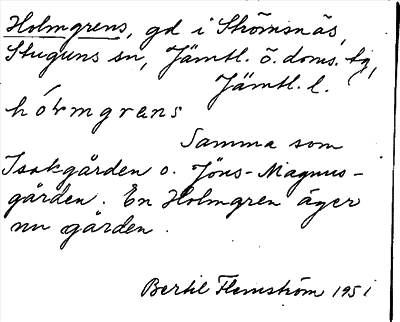 Holmgrens, gd i Strömsnäs,
Stuguns sn, Jämtl. ö. doms. tg,
Jämtl. l.
hólmgrens
Samma som
Isakgården o. Jöns-Magnus-
gården. En Holmgren äger
nu gården.
Bertil Flemström 1951